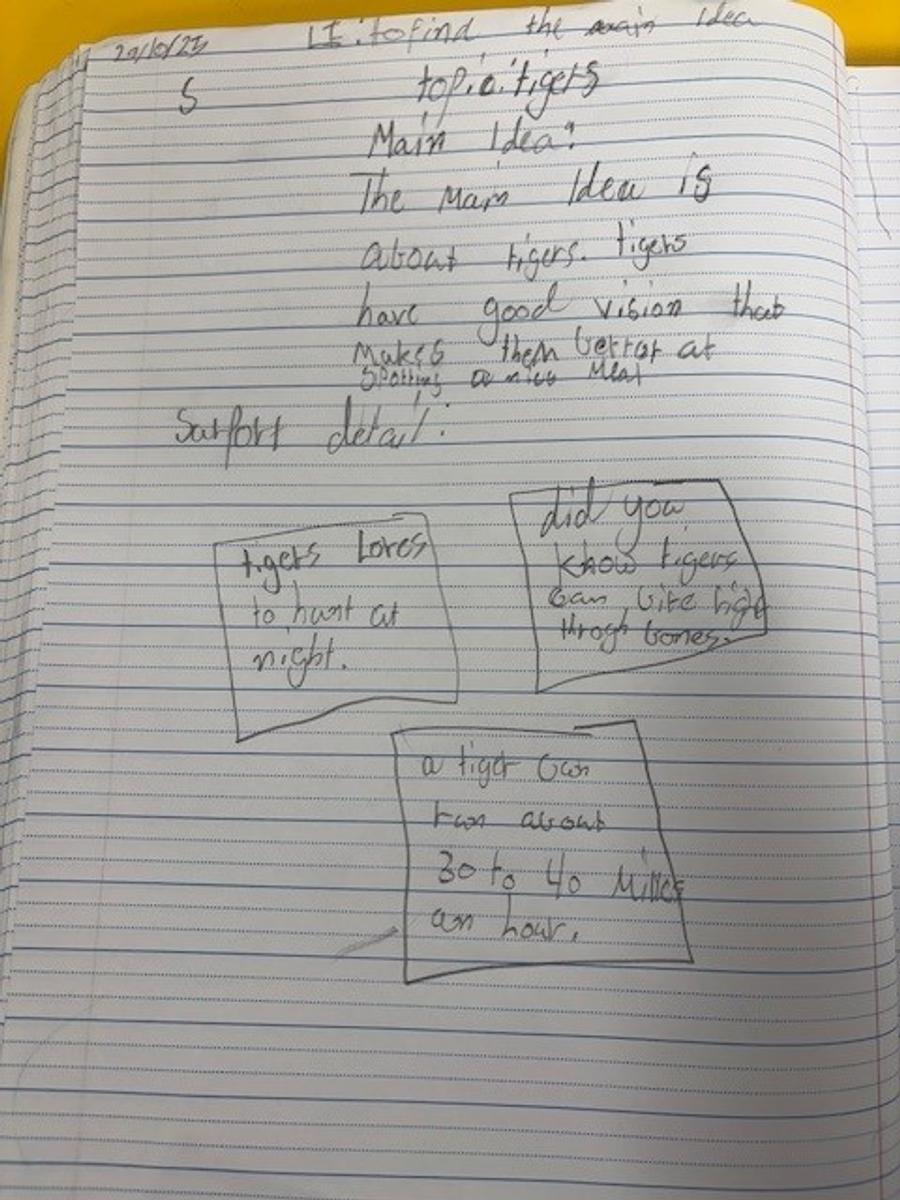 20/10/25 LI: to find the main Idea
S
topic: tigers
Main Idea:
The main Idea is
about tigers. tigers
have good vision that
makes them bettor at
spotting a nice meal
Surport detail:
tigers Loves
to hunt at
night.
did you
know tigers
can bite righ
throgh bones.
a tiger can
run about
30 to 40 Milles
an hour.